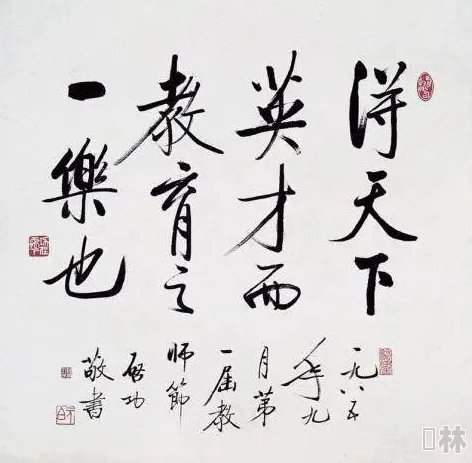 得天下
英才而
教育之
一樂也
一九八五
年九
月第
一届教
師節
啟功
敬書
林